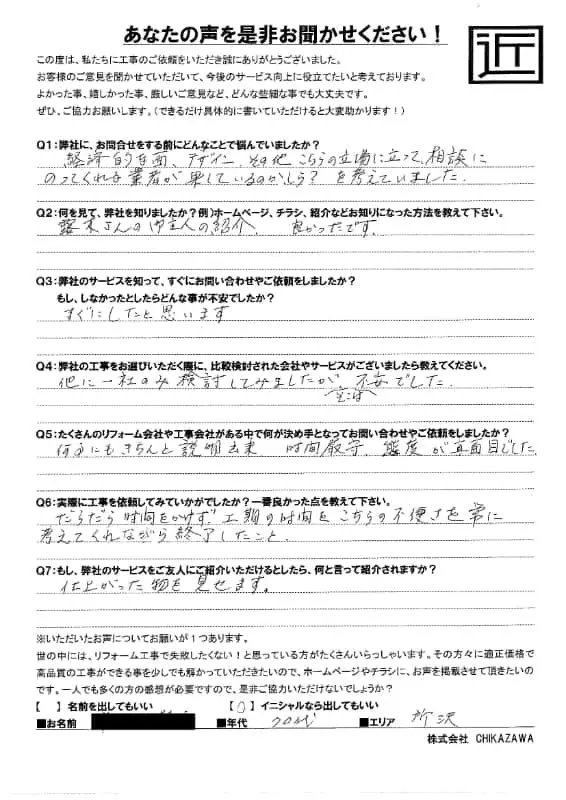 あなたの声を是非お聞かせください！
近
この度は、私たちに工事のご依頼をいただき誠にありがとうございました。
お客様のご意見を聞かせていただいて、今後のサービス向上に役立てたいと考えております。
よかった事、嬉しかった事、厳しいご意見など、どんな些細な事でも大丈夫です。
ぜひ、ご協力お願いします。（できるだけ具体的に書いていただけると大変助かります！）
Q1：弊社に、お問合せをする前にどんなことで悩んでいましたか？
経済的な面、デザイン、その他 こちらの立場に立って、相談に
のってくれる業者が果しているのかしら？ を考えていました.
Q2：何を見て、弊社を知りましたか？例）ホームページ、チラシ、紹介などお知りになった方法を教えて下さい。
さんの御主人の紹介、 良かったです.
Q3：弊社のサービスを知って、すぐにお問い合わせやご依頼をしましたか？
もし、しなかったとしたらどんな事が不安でしたか？
すぐにしたと思います
Q4：弊社の工事をお選びいただく際に、比較検討された会社やサービスがございましたら教えてください。
他に一社のみ検討してみましたが、そこは不安でした.
Q5：たくさんのリフォーム会社や工事会社がある中で何が決め手となってお問い合わせやご依頼をしましたか？
何事にもきちんと説明出来 時間厳守、態度が真面目でした
Q6：実際に工事を依頼してみていかがでしたか？一番良かった点を教えて下さい。
だらだら時間をかけず、工期の時間をこちらの不便さを常に
考えてくれながら終了したこと.
Q7：もし、弊社のサービスをご友人にご紹介いただけるとしたら、何と言って紹介されますか？
仕上がった物を見せます。
※いただいたお声についてお願いが１つあります。
世の中には、リフォーム工事で失敗したくない！と思っている方がたくさんいらっしゃいます。その方々に適正価格で
高品質の工事ができる事を少しでも解かっていただきたいので、ホームページやチラシに、お声を掲載させて頂きたいの
です。一人でも多くの方の感想が必要ですので、是非ご協力いただけないでしょうか？
【　】名前を出してもいい 【○】イニシャルなら出してもいい
■お名前 ■年代 70代 ■エリア 所沢
株式会社 CHIKAZAWA